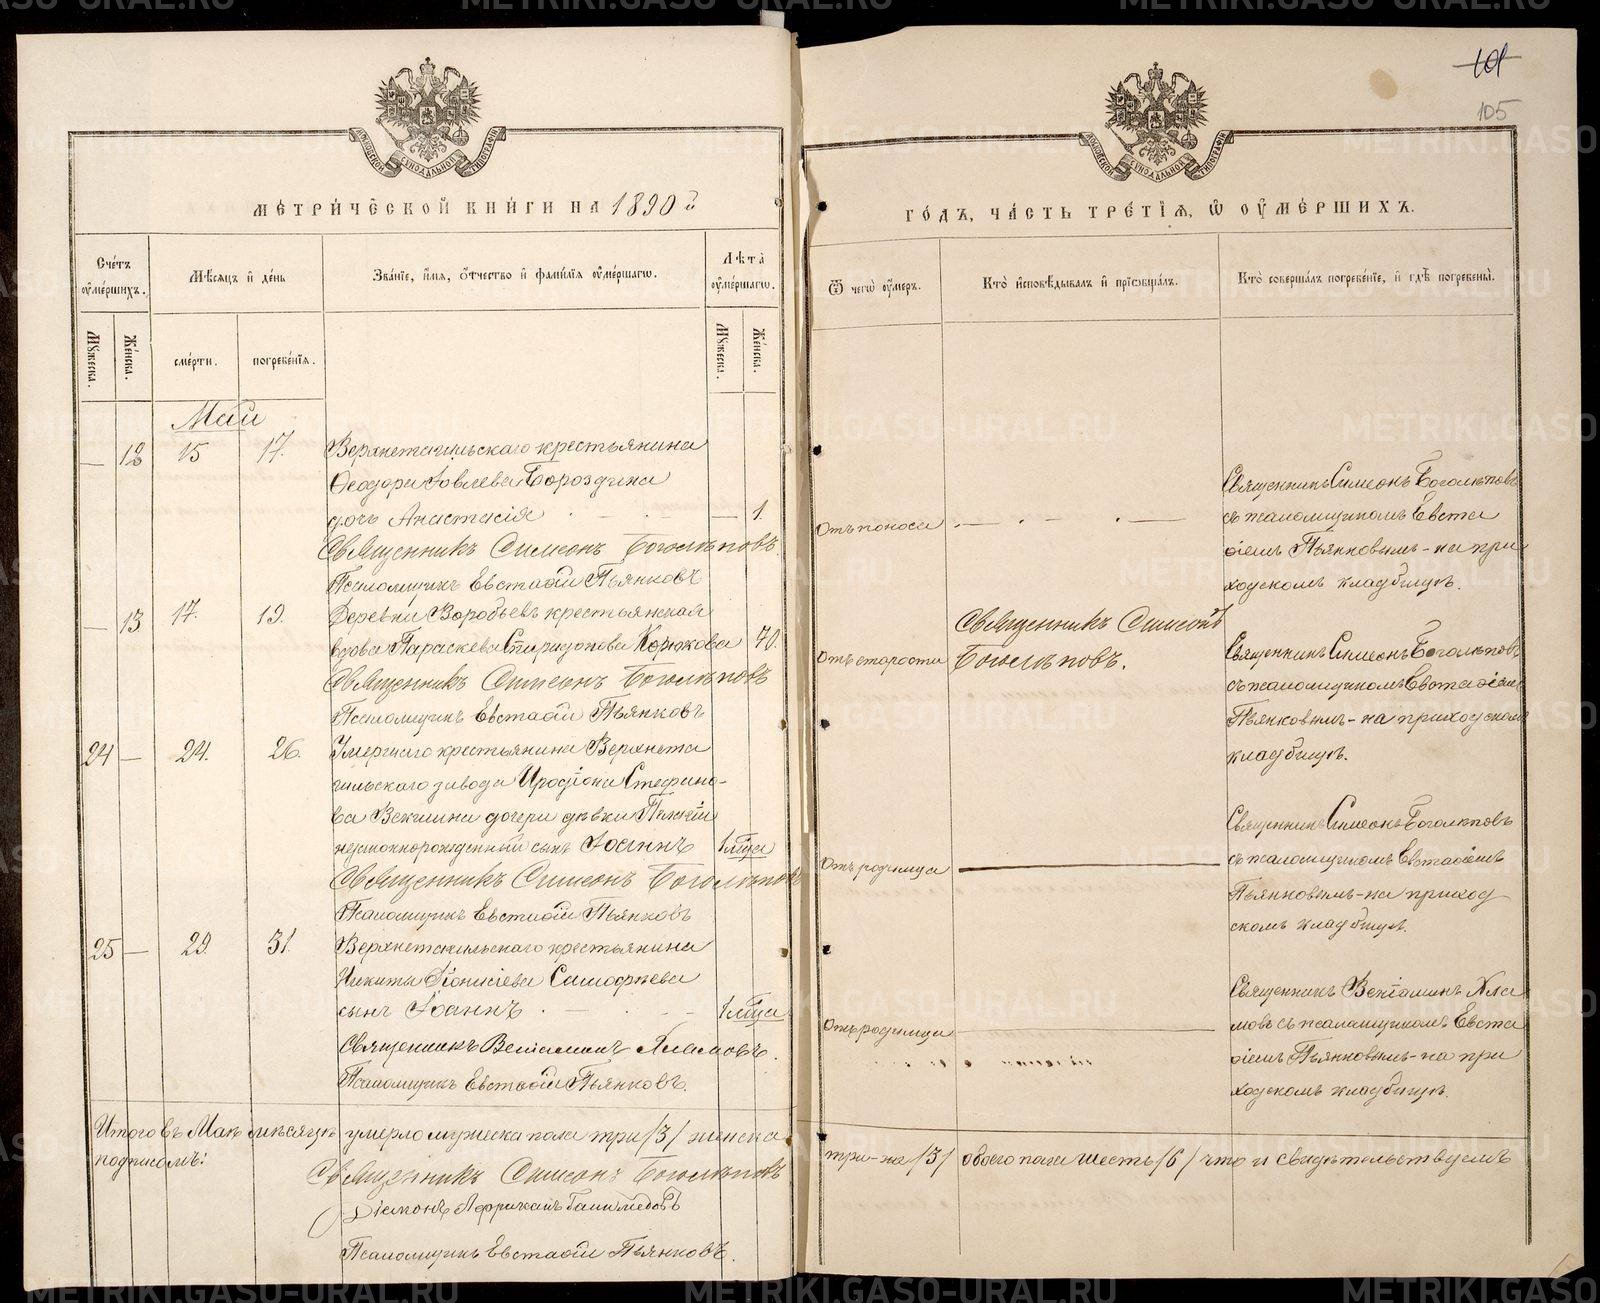 101
105
МОСКОВСКОЙ СѴНОДАЛЬНОЙ ТИПОГРАФІИ
МОСКОВСКОЙ СѴНОДАЛЬНОЙ ТИПОГРАФІИ
МЕТРИЧЕСКОЙ КНИГИ НА 1890й
Счетъ оумершихъ.
Мѣсяцъ и день
Званіе, имя, отчество и фамилія оумершагѡ.
Лѣта оумершагѡ.
Мꙋжеска.
Женска.
смерти.
погребенія.
Мꙋжеска.
Женска.
Май
— 12 15 17. Верхнетагильскаго крестьянина
Ѳеодора Іовлева Бороздина
дочь Анастасія — 1.
Священникъ Симеонъ Боголѣповъ.
Псаломщикъ Евстаѳій Пьянковъ
— 13 17. 19. Деревни Воробьевъ крестьянская
вдова Параскева Спиридонова Корюкова 70.
Священникъ Симеонъ Боголѣповъ
Псаломщикъ Евстаѳій Пьянковъ
24 — 24. 26. Умершаго крестьянина Верхнета
гильскаго завода Иродіона Стефано-
ва Векшина дочери дѣвки
незаконнорожденный сынъ Іоаннъ 1 мѣсца
Священникъ Симеонъ Боголѣповъ
Псаломщикъ Евстаѳій Пьянковъ
25 — 29. 31. Верхнетагильскаго крестьянина
Никиты Діонисіева
сынъ Іоаннъ — 1 мѣсца
Священникъ Веніаминъ Хламовъ.
Псаломщикъ Евстаѳій Пьянковъ.
Итого въ Маѣ мѣсяцѣ умерло мужеска пола три /3/ женска
подписомъ:
Священникъ Симеонъ Боголѣповъ
Діаконъ
Псаломщикъ Евстаѳій Пьянковъ.
ГОДЪ, ЧАСТЬ ТРЕТІЯ, Ѡ ОУМЕРШИХЪ.
Ѿ чегѡ оумеръ.
Кто исповѣдывалъ и пріобщалъ.
Кто совершалъ погребеніе, и гдѣ погребены.
Отъ поноса — —
Священникъ Симеонъ Боголѣповъ
съ псаломщикомъ Евста
ѳіемъ Пьянковымъ - на при
ходскомъ кладбищѣ.
Отъ старости
Священникъ Симеонъ
Боголѣповъ.
Священникъ Симеонъ Боголѣповъ
съ псаломщикомъ Евстаѳіемъ
Пьянковымъ - на приходскомъ
кладбищѣ.
Отъ родимца —
Священникъ Симеонъ Боголѣповъ
съ псаломщикомъ Евстаѳіемъ
Пьянковымъ - на приход
скомъ кладбищѣ.
Отъ родимца —
Священникъ Веніаминъ Хла
мовъ съ псаломщикомъ Евста
ѳіемъ Пьянковымъ - на при
ходскомъ кладбищѣ.
три - на /3/ обоего пола шесть /6/ что и свидѣтельствуемъ
METRIKI.GASO-URAL.RU